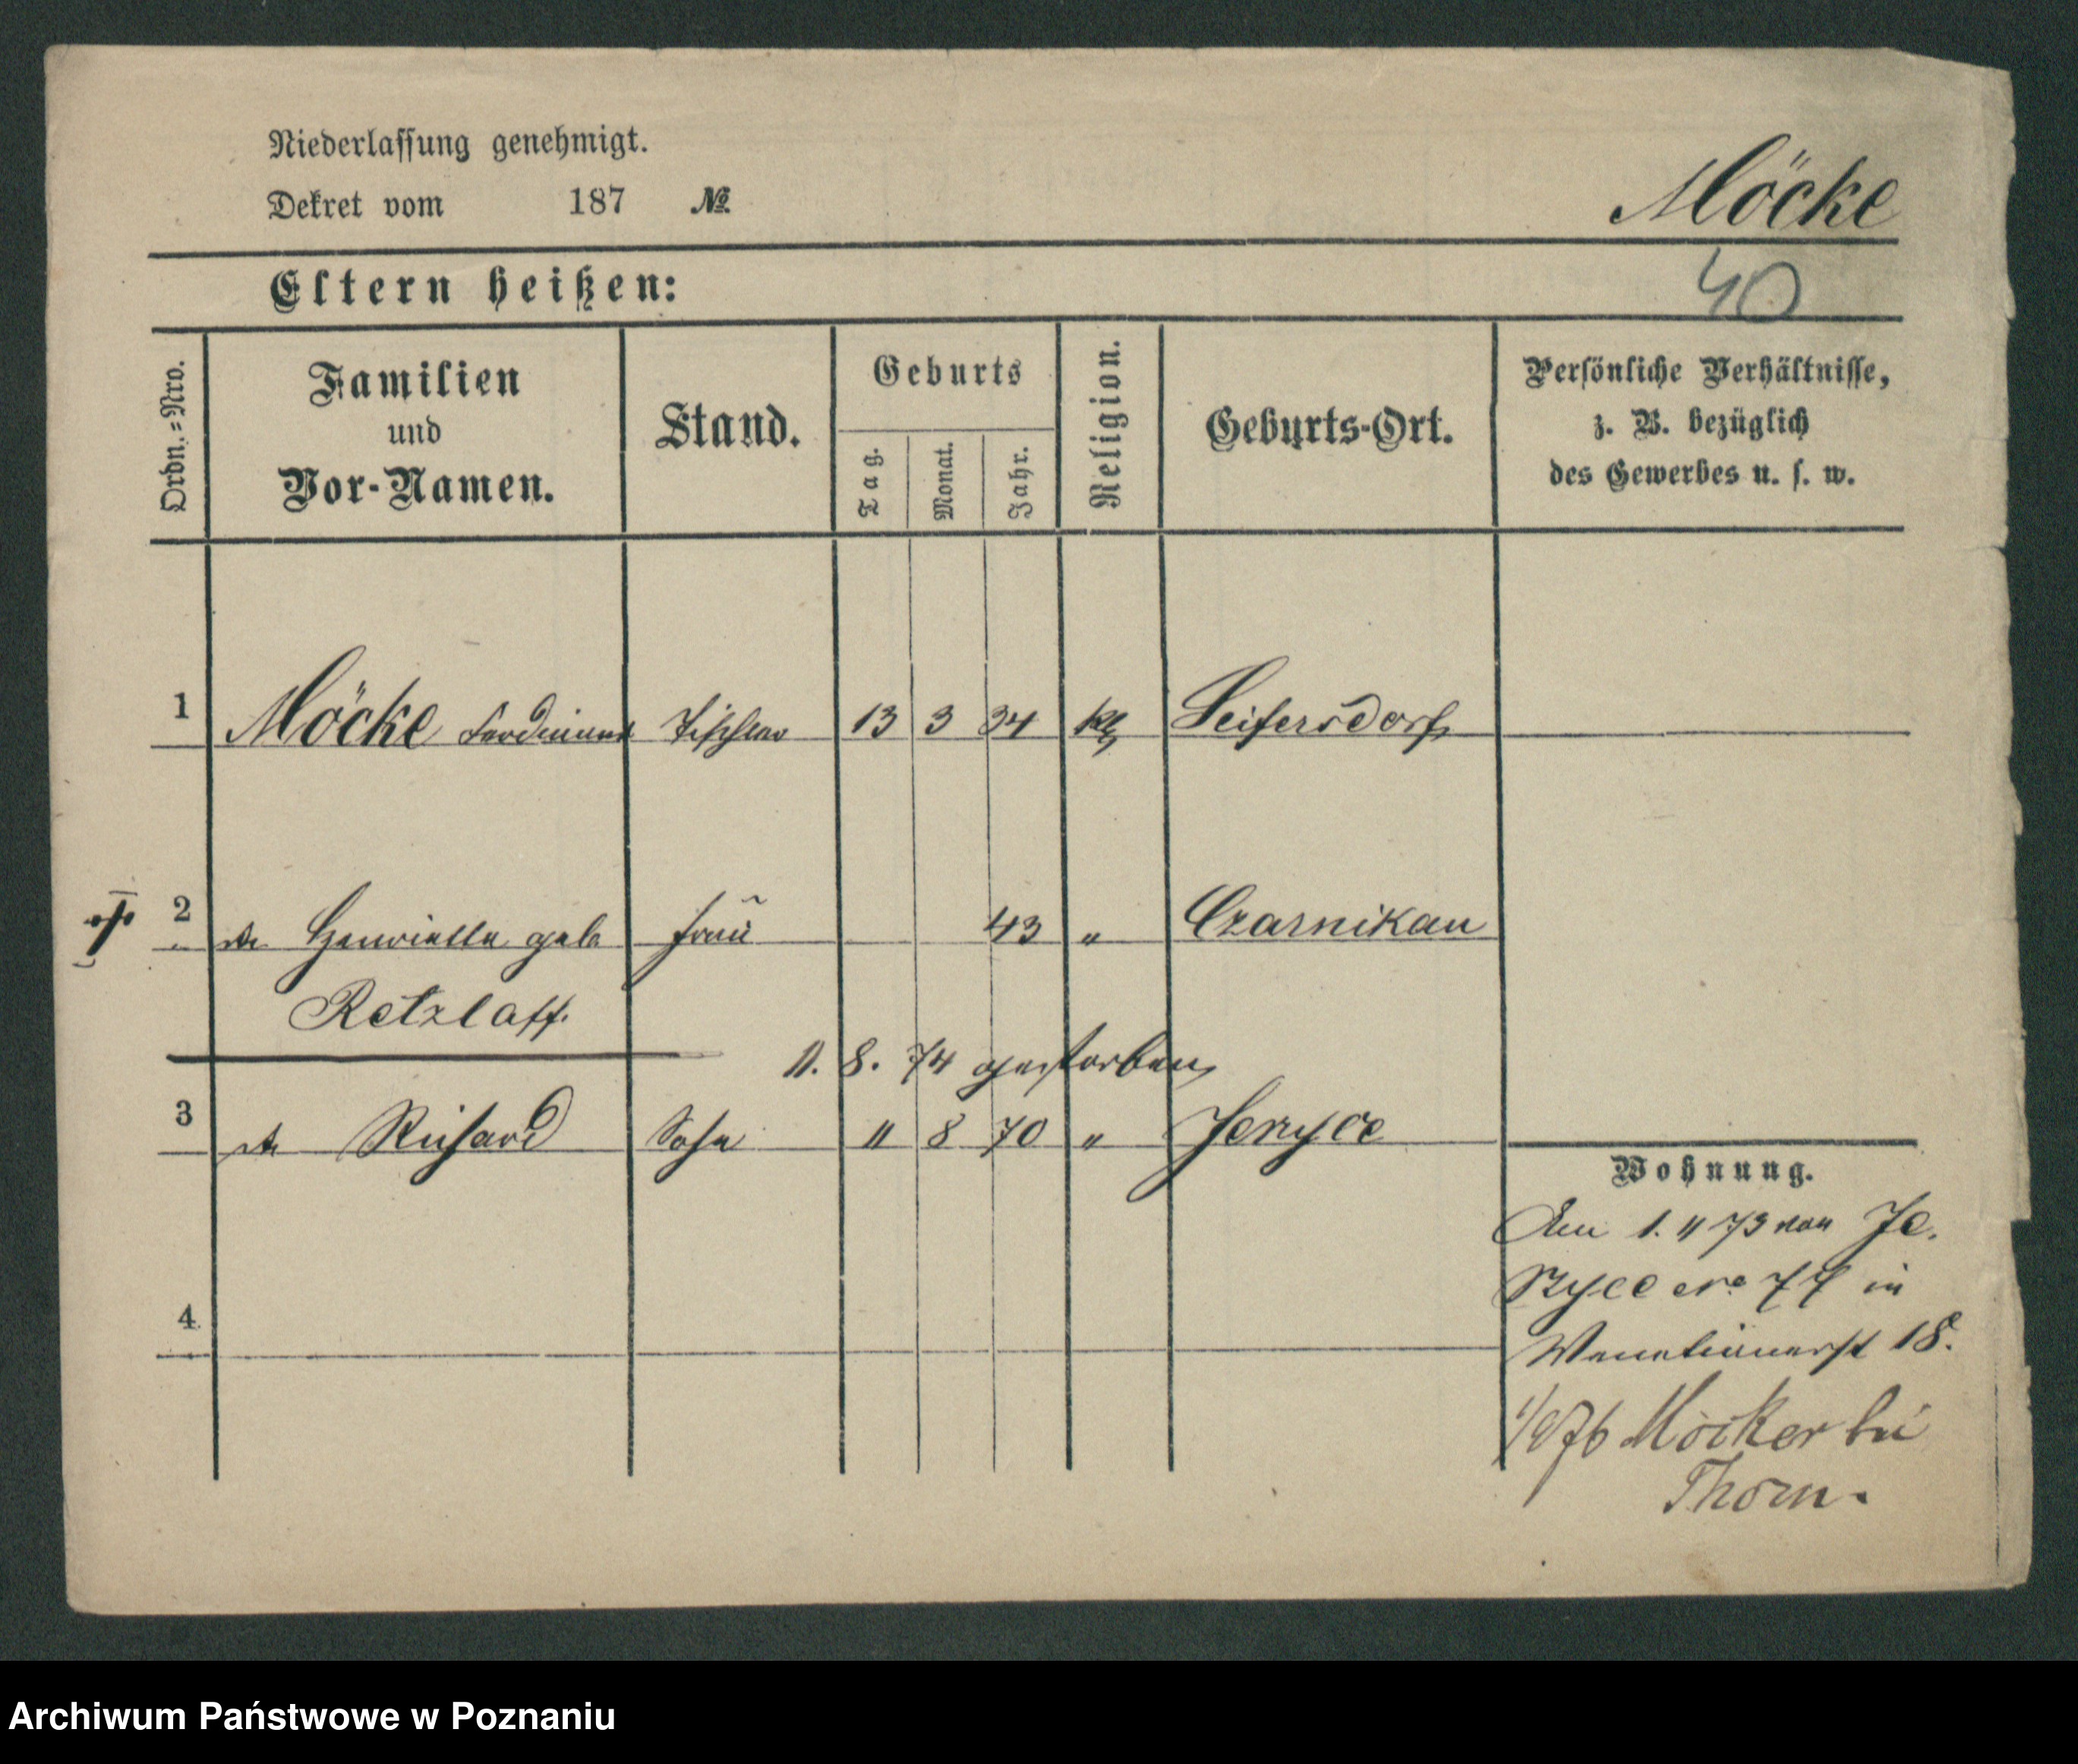 Niederlassung genehmigt.
Dekret vom 187 №
Möcke
Eltern heißen:
40
Ordn.-Nro.
Familien
und
Vor-Namen.
Stand.
Geburts
Tag.
Monat.
Jahr.
Religion.
Geburts-Ort.
Persönliche Verhältnisse,
z. B. bezüglich
des Gewerbes u. s. w.
1 Möcke Ferdinand Tischler 13 3 34 Seifersdorf
2 Henriette geb Frau 43 " Czarnikau
Retzlaff.
11. 8. 74 gestorben
3 Richard Sohn 11 8 70 " Jerzyce
Wohnung.
Am 1. 11 73 von Je.
rzyce No 77 in
Wenetianerst 18.
4
76 Mocker bei
Thorn.
Archiwum Państwowe w Poznaniu